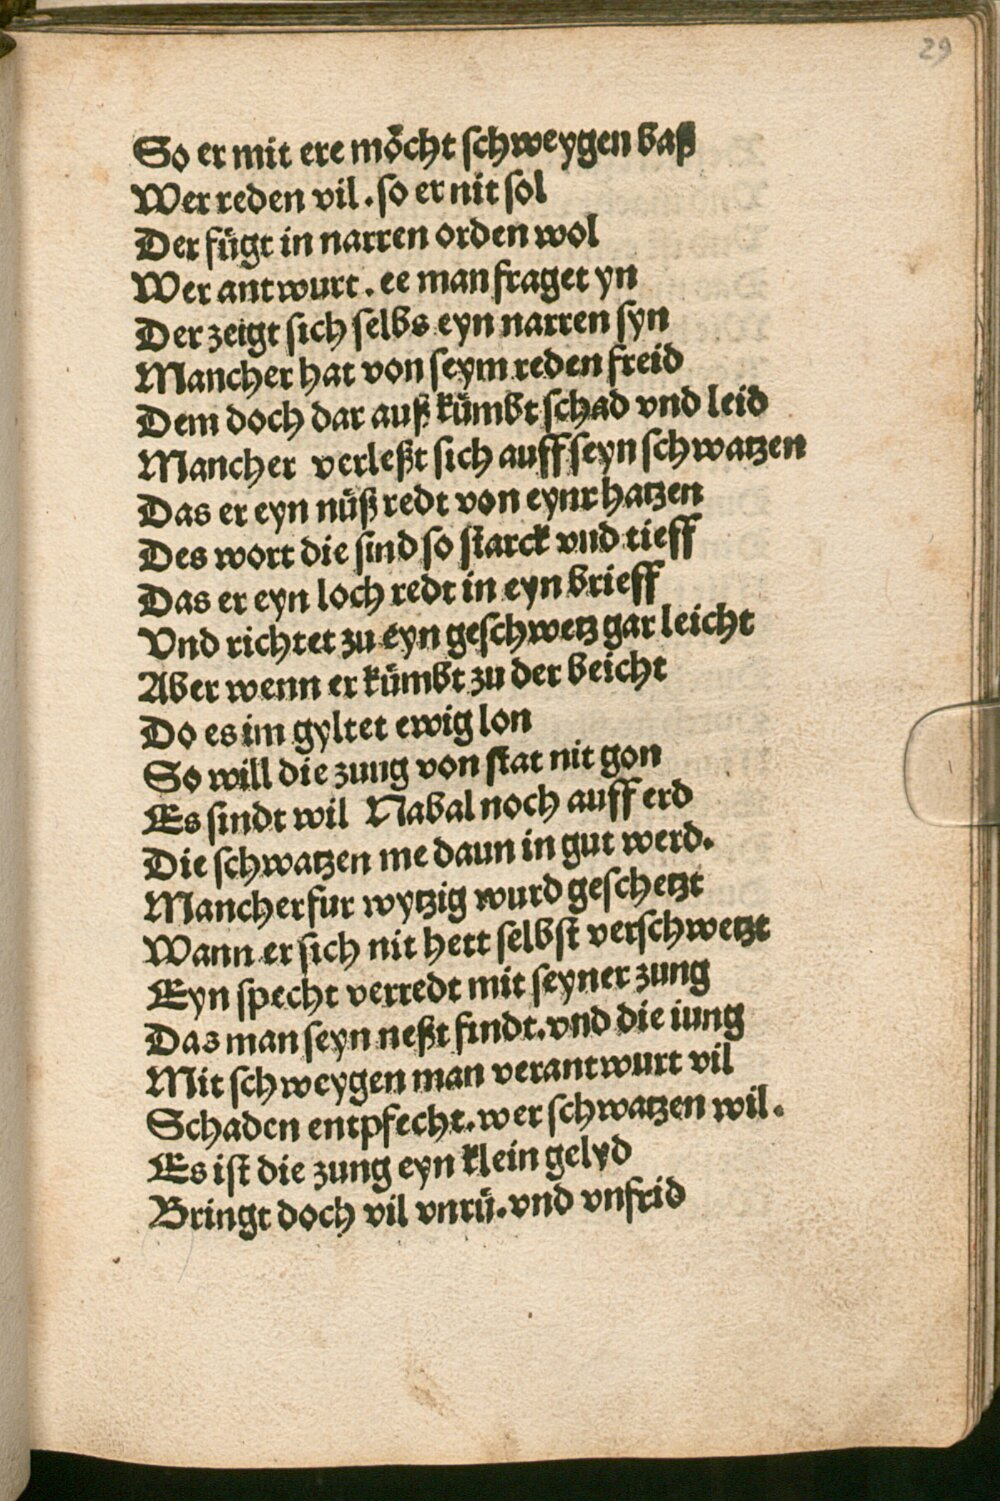 29
So er mit ere möcht schweygen baß
Wer reden vil . so er nit sol
Der fügt in narren orden wol
Wer antwurt . ee man fraget yn
Der zeigt sich selbs eyn narren syn
Mancher hat von seym reden freid
Dem doch dar auß kümbt schad vnd leid
Mancher verleßt sich auff seyn schwatzen
Das er eyn nüß redt von eynr hatzen
Des wort die sind so starck vnd tieff
Das er eyn loch redt in eyn brieff
Vnd richtet zu eyn geschwetz gar leicht
Aber wenn er kümbt zu der beicht
Do es im gyltet ewig lon
So will die zung von stat nit gon
Es sindt wil Nabal noch auff erd
Die schwatzen me daun in gut werd.
Mancher fur wytzig wurd geschetzt
Wann er sich nit hett selbst verschwetzt
Eyn specht verredt mit seyner zung
Das man seyn neßt findt. vnd die iung
Mit schweygen man verantwurt vil
Schaden entpfecht. wer schwatzen wil .
Es ist die zung eyn klein gelyd
Bringt doch vil vnrü. vnd vnfrid